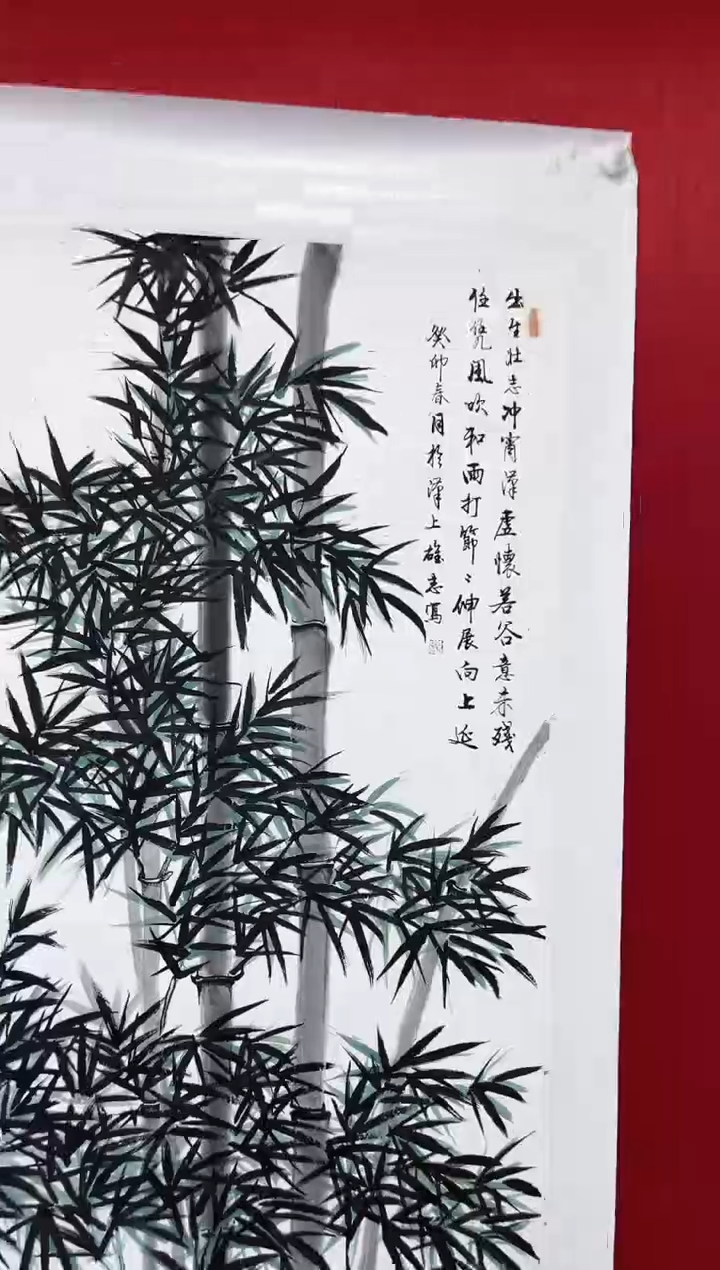 出生壮志冲霄漢虚懷若谷意未殘
任凭風吹和雨打節〻伸展向上延
癸卯春月於漢上雄志寫